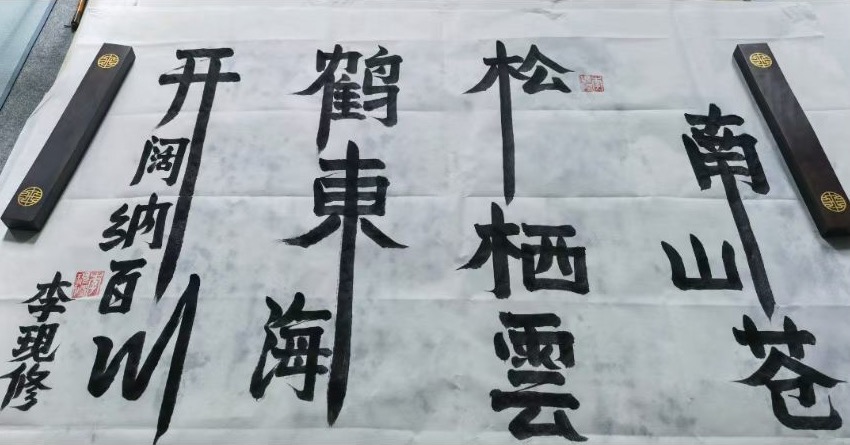 南山苍
松栖雲
鹤東海
开阔纳百川
李现修